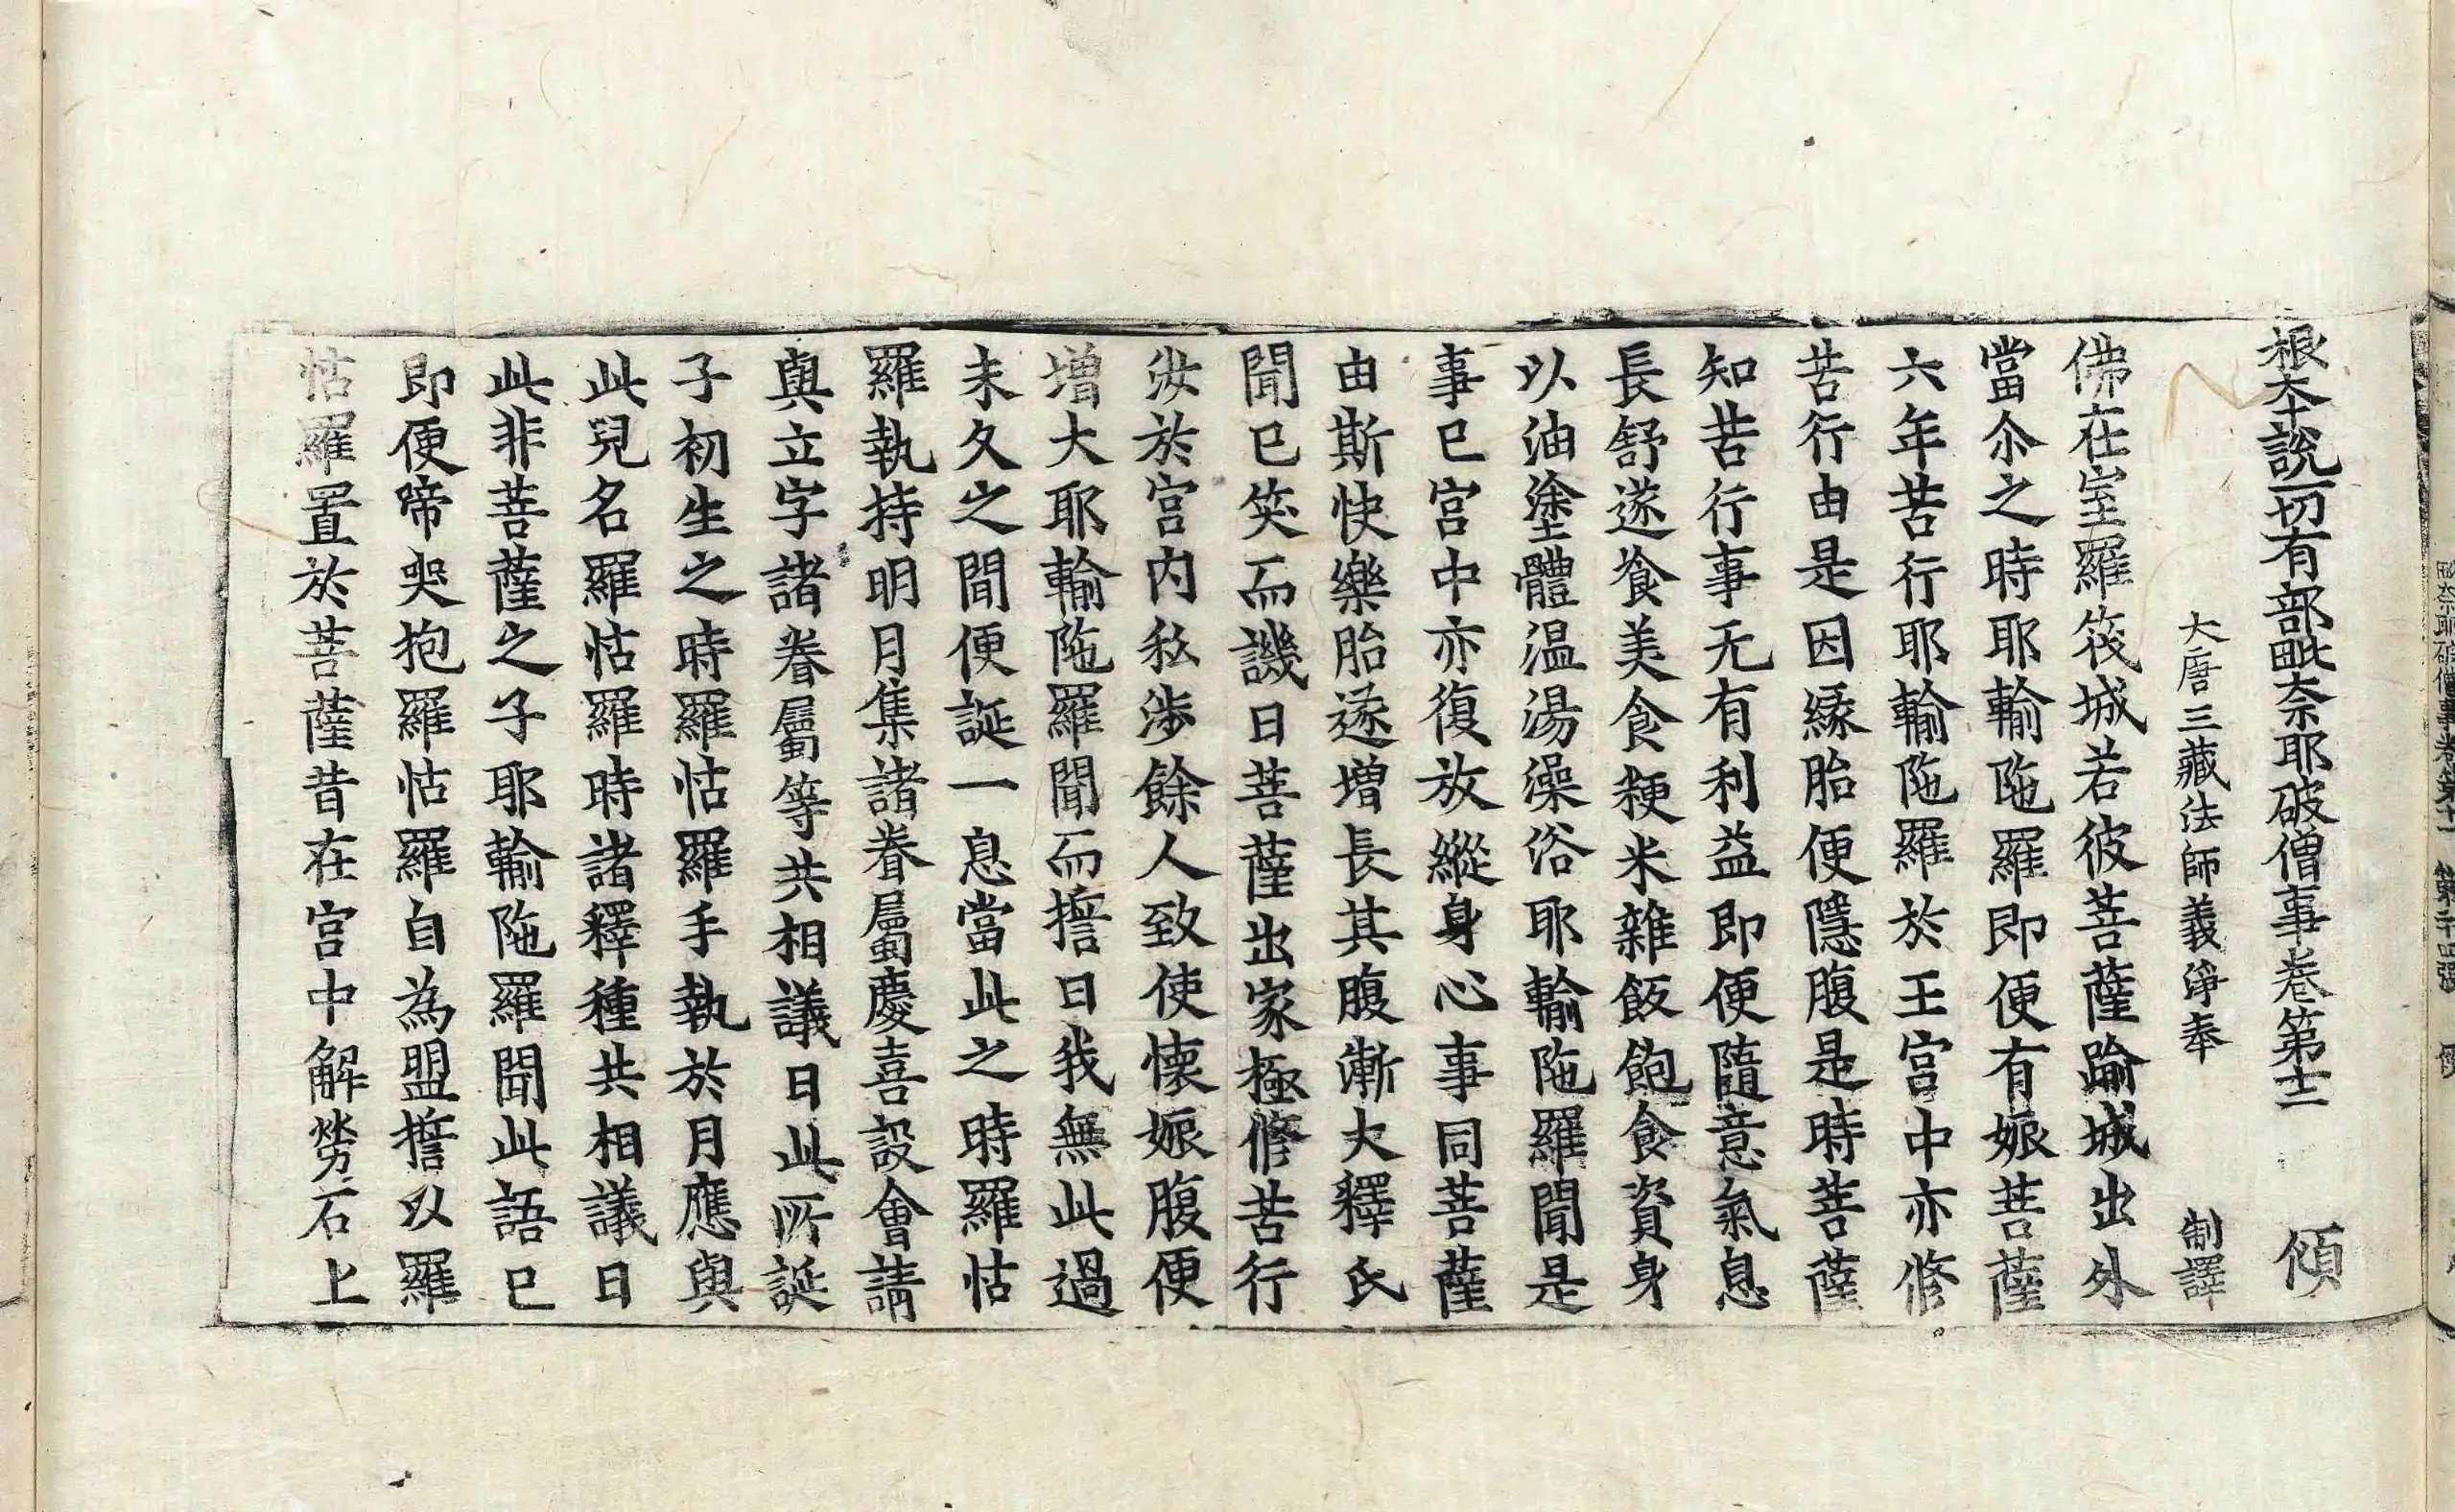 根本說一切有部毗奈耶破僧事卷第十二 傾
大唐三藏法師義淨奉 制譯
佛在室羅筏城若彼菩薩踰城出外
當尒之時耶輸陁羅即便有娠菩薩
六年苦行耶輸陁羅於王宮中亦修
苦行由是因緣胎便隱腹是時菩薩
知苦行事无有利益即便隨意氣息
長舒遂飡美食粳米雜飯飽食資身
以油塗體温湯澡浴耶輸陁羅聞是
事已宮中亦復放縱身心事同菩薩
由斯快樂胎遂增長其腹漸大釋氏
聞已笑而譏曰菩薩出家極修苦行
汝於宮內私涉餘人致使懷娠腹便
增大耶輸陁羅聞而誓曰我無此過
未久之間便誕一息當此之時羅怙
羅執持明月集諸眷屬慶喜設會請
與立字諸眷屬等共相議曰此所誕
子初生之時羅怙羅手執於月應與
此兒名羅怙羅時諸釋種共相議曰
此非菩薩之子耶輸陁羅聞此語已
即便啼哭抱羅怙羅自為盟誓以羅
怙羅置於菩薩昔在宮中解勞石上